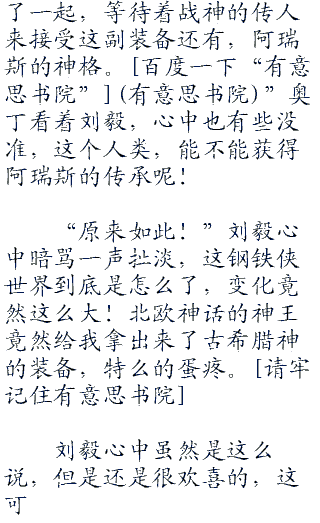 了一起，等待着战神的传人
来接受这副装备还有，阿瑞
斯的神格。[百度一下“有意
思书院”](有意思书院)”奥
丁看着刘毅，心中也有些没
准，这个人类，能不能获得
阿瑞斯的传承呢！
“原来如此！”刘毅心
中暗骂一声扯淡，这钢铁侠
世界到底是怎么了，变化竟
然这么大！北欧神话的神王
竟然给我拿出来了古希腊神
的装备，特么的蛋疼。[请牢
记住有意思书院]
刘毅心中虽然是这么
说，但是还是很欢喜的，这
可